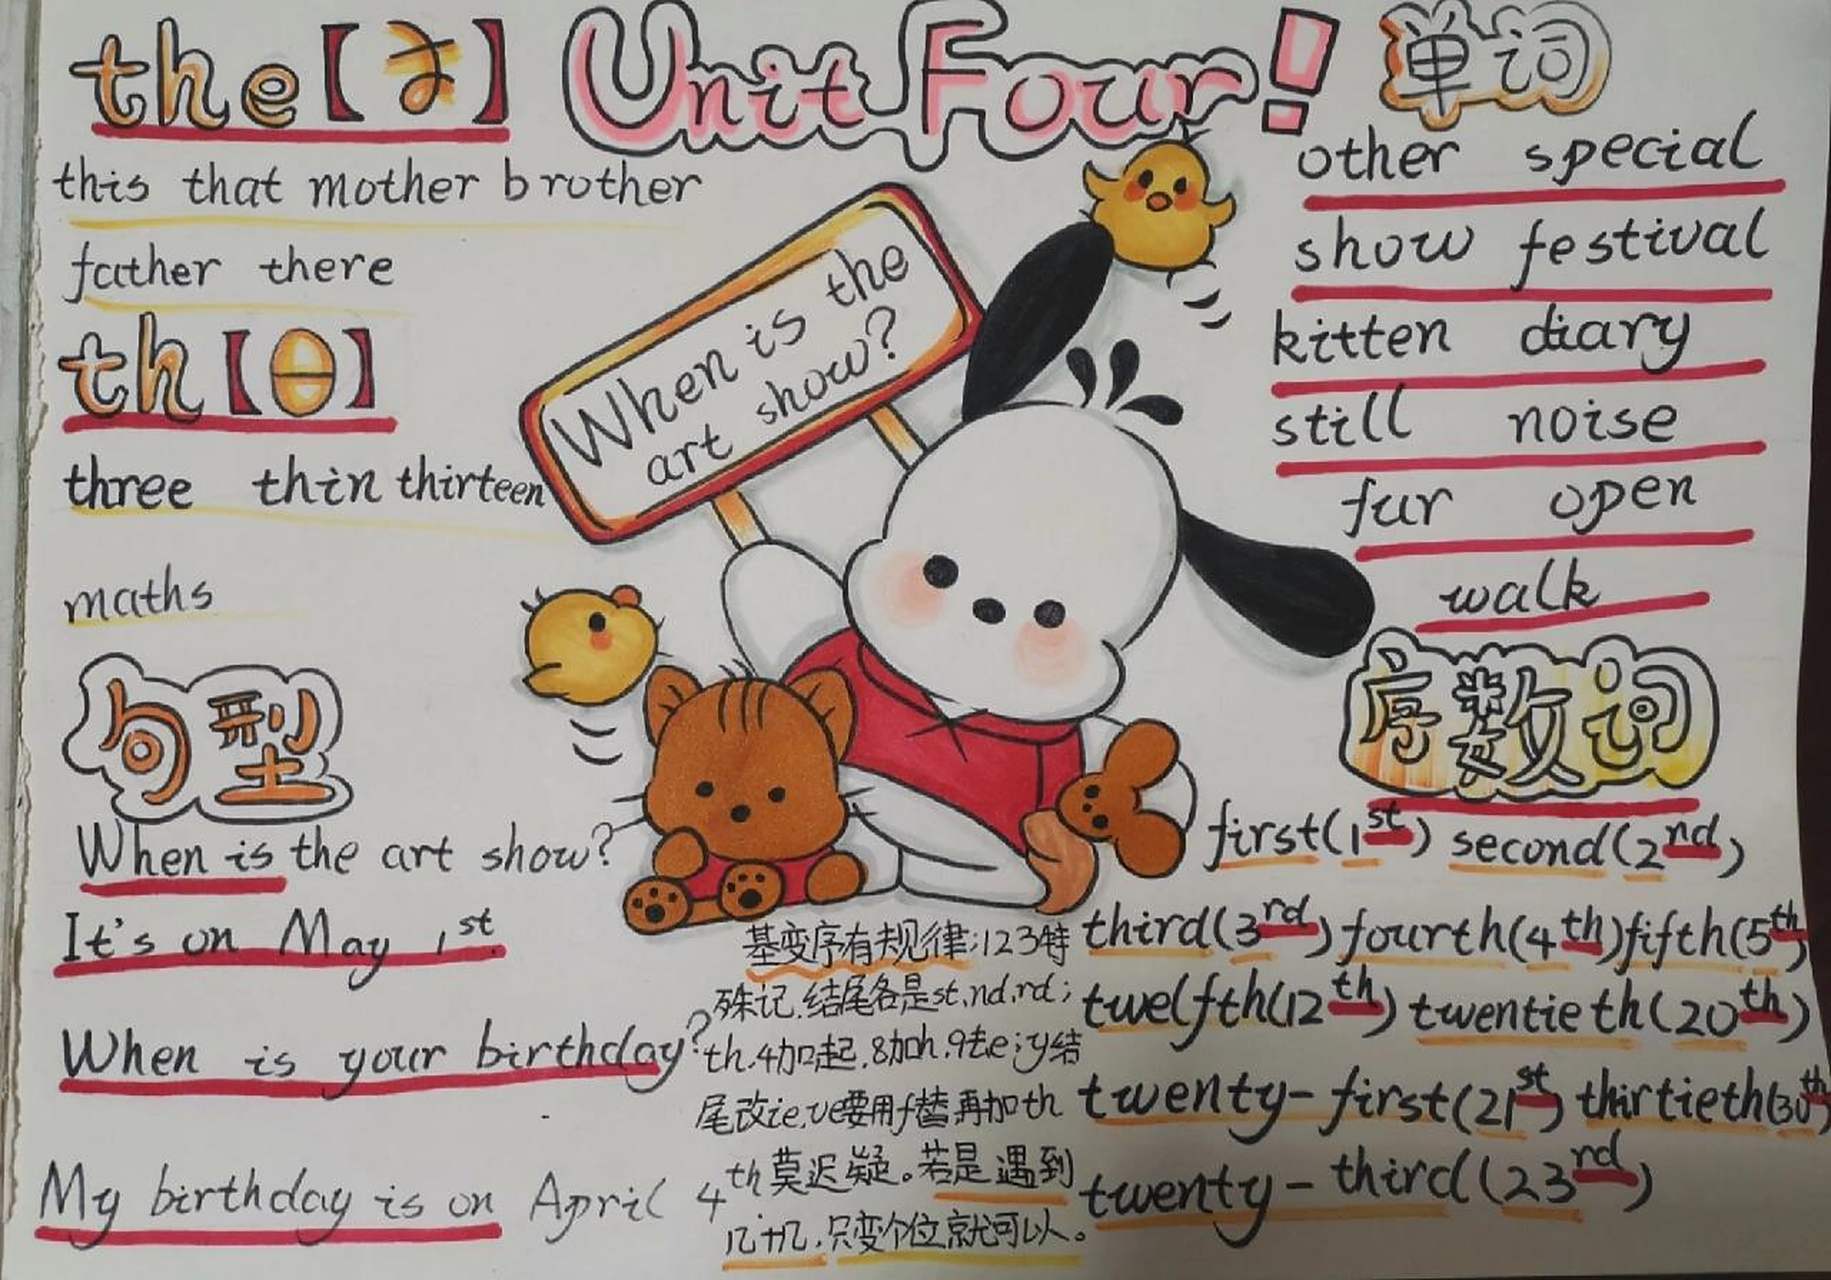 the【ð】
Unit Four!
单词
this that mother brother
father there
th【θ】
three thin thirteen
maths
When is the
art show?
other special
show festival
kitten diary
still noise
fur open
walk
句型
When is the art show?
It's on May 1st.
When is your birthday?
My birthday is on April 4th
基变序有规律:123特
殊记.结尾各是st,nd,rd;
th.4加口起.8加h.9去e;y结
尾改ie,ve要用f替再加th
莫迟疑。若是遇到
几十几,只变个位就可以。
序数词
first(1st) second(2nd)
third(3rd) fourth(4th) fifth(5th)
twelfth(12th) twentieth(20th)
twenty-first(21st) thirtieth(30th)
twenty-third(23rd)